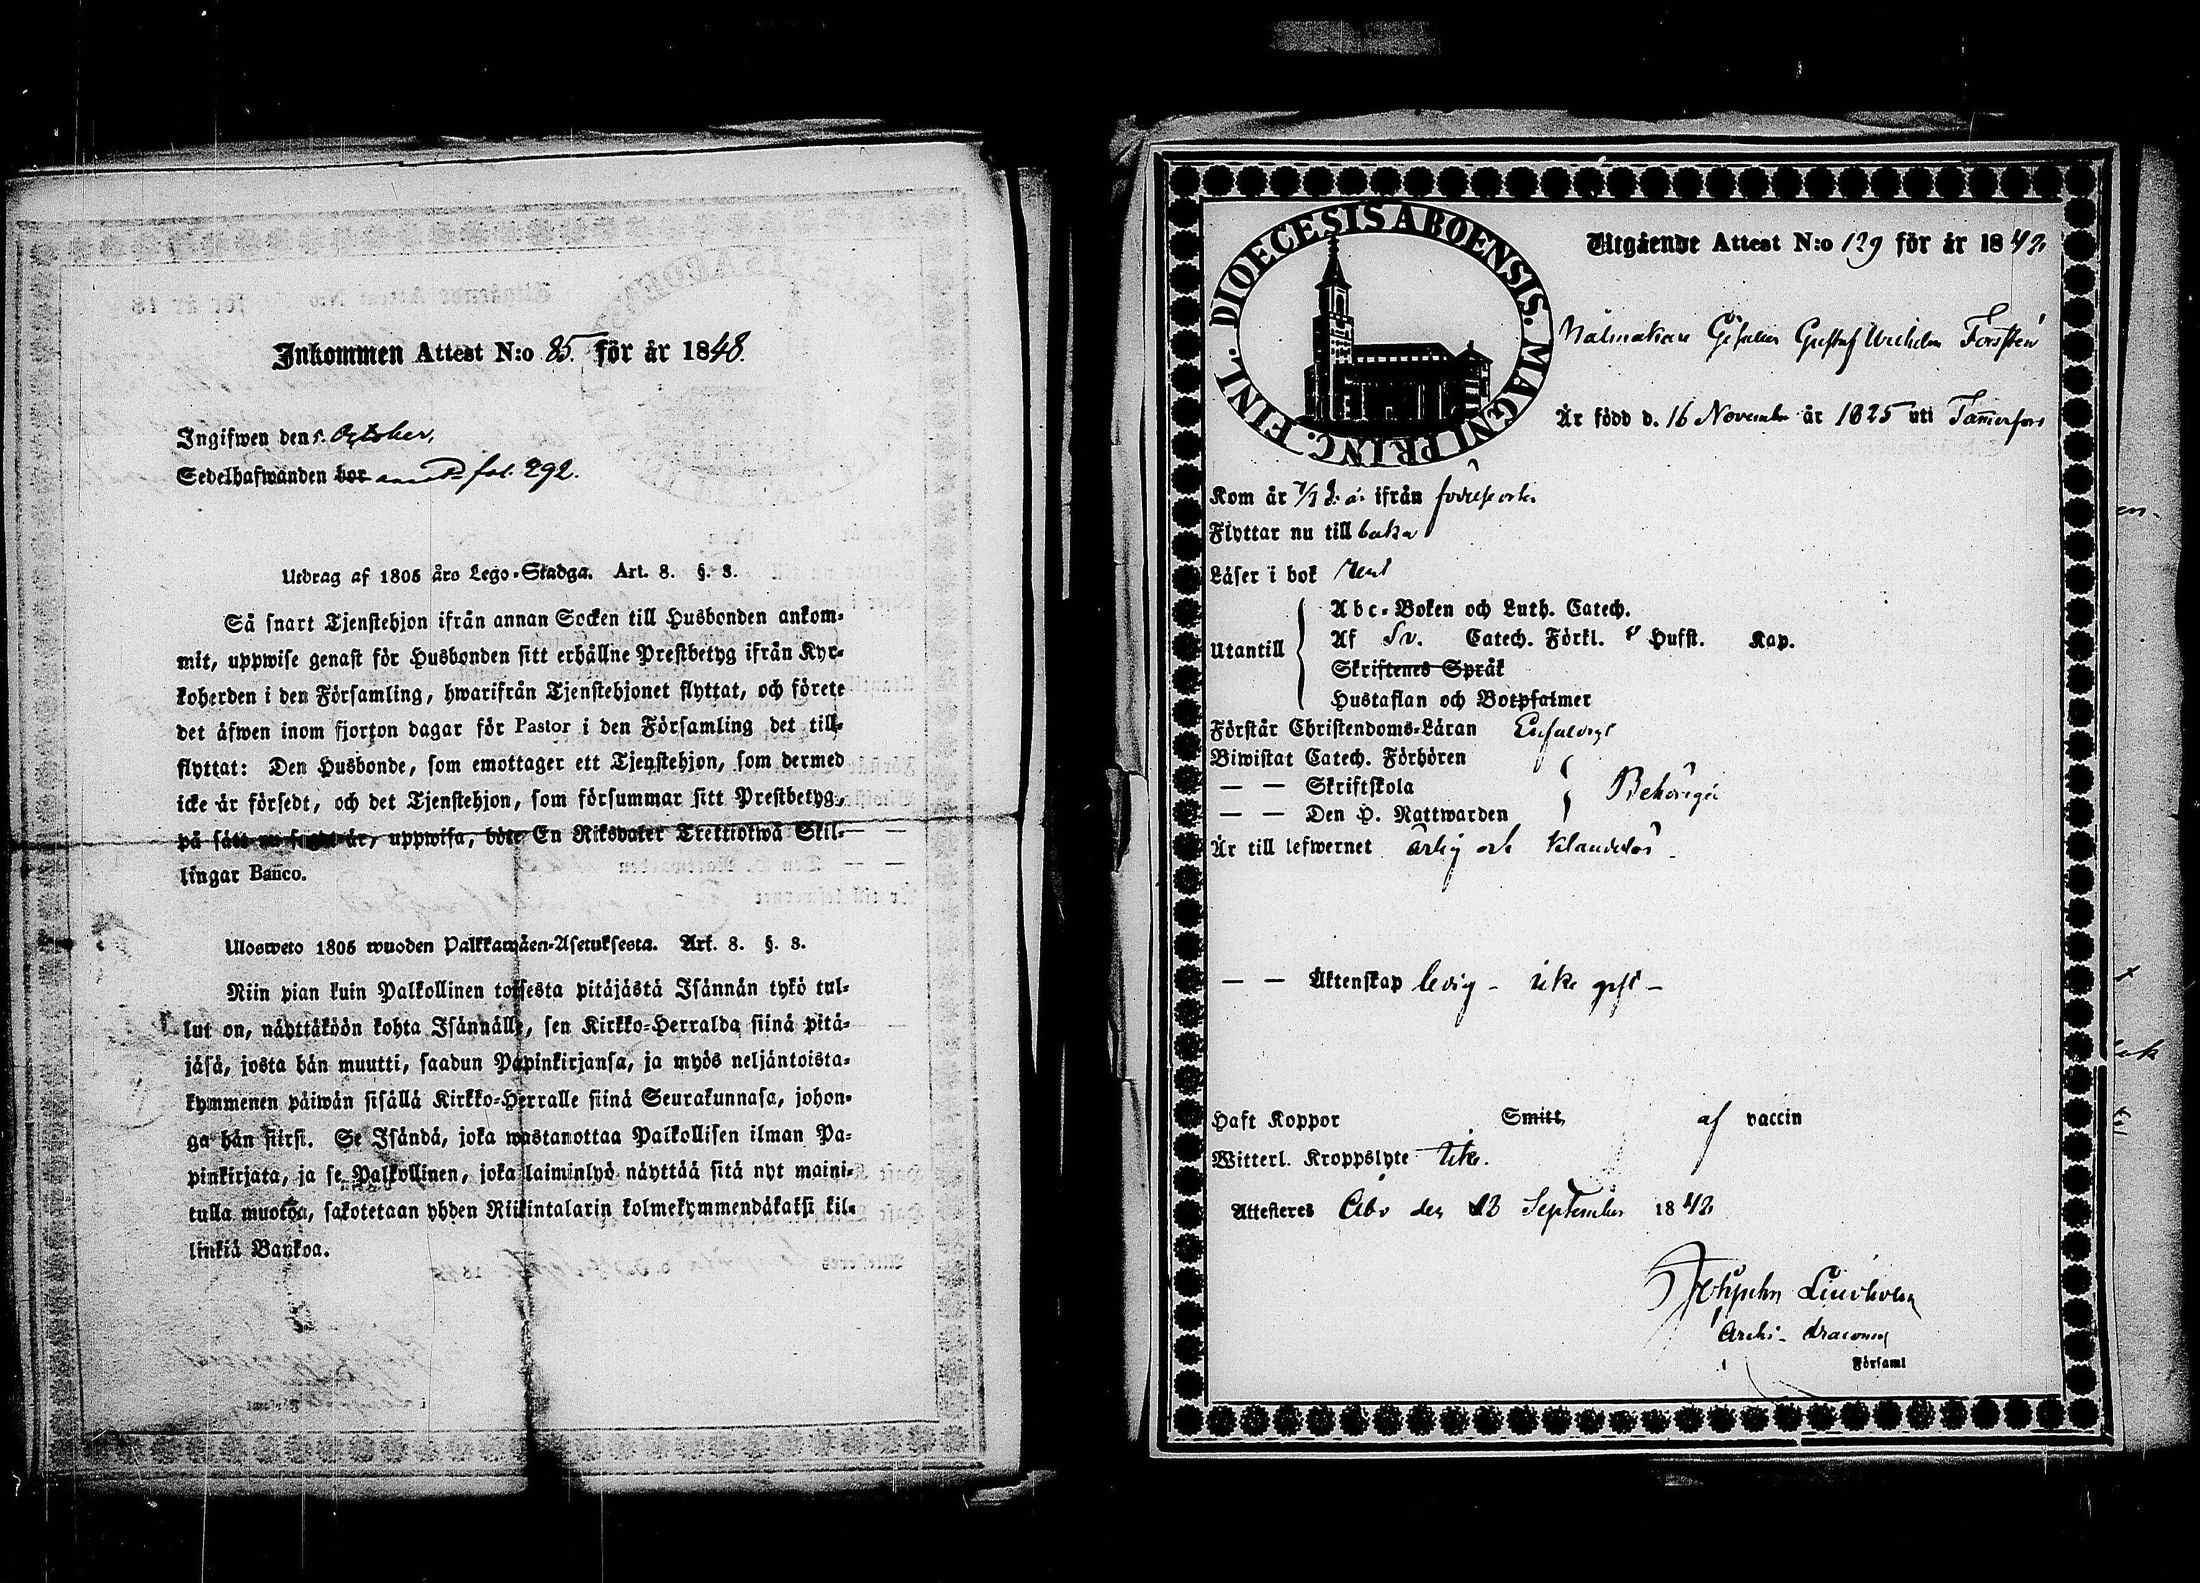 Inkommen Attest N:o 85 för år 1848.
Ingifwen den 5. October,
Sedelhafwanden bor fol. 292.
Utdrag af 1805 års Lego-Stadga. Art. 8. §. 8.
Så snart Tjenstehjon ifrån annan Socken till Husbonden ankom-
mit, uppwise genast för Husbonden sitt erhållne Prestbetyg ifrån Kyr-
koherden i den Församling, hwarifrån Tjenstehjonet flyttat, och förete
det äfwen inom fjorton dagar för Pastor i den Församling det till-
flyttat: Den Husbonde, som emottager ett Tjenstehjon, som dermed
icke är försedt, och det Tjenstehjon, som försummar sitt Prestbetyg,
på sätt nu sagt är, uppwisa, böte En Riksdaler Trettiotwå Skil-
lingar Banco.
Ulosweto 1805 wuoden Palkkawäen-Asetuksesta. Art. 8. §. 8.
Niin pian kuin Palkollinen toisesta pitäjästä Isännän tykö tul-
lut on, näyttäköön kohta Isännälle, sen Kirkko-Herralda siinä pitä-
jäsä, josta hän muutti, saadun Papinkirjansa, ja myös neljäntoista-
kymmenen päiwän sisällä Kirkko-Herralle siinä Seurakunnasa, johon-
ga hän siirsi. Se Isändä, joka wastanottaa Palkollisen ilman Pa-
pinkirjata, ja se Palkollinen, joka laiminlyö näyttää sitä nyt maini-
tulla muotoa, sakotetaan yhden Riikintalarin kolmekymmendäkaksi kil-
linkiä Bankoa.
DIOECESIS ABOENSIS. MAGNI PRINC. FINL.
Utgående Attest N:o 129 för år 1848
Nålmakare Gesällen Gustaf Wilhelm Forstén
Är född d. 16 November år 1825 uti Tammerfors
Kom år ifrån födelseorten
Flyttar nu till baka
Läser i bok rent
Abc-Boken och Luth. Catech.
Utantill Af Sv. Catech. Förkl. Husst. Kap.
Skriftenes Språk
Hustaflan och Botpsalmer
Förstår Christendoms-Läran Enfaldigt
Biwistat Catech. Förhören
— — Skriftskola Behörigen
— — Den H. Nattwarden
Är till lefwernet ärlig och klanderlös
— — Äktenskap ledig - icke gift -
Haft Koppor Smitt, af vaccin
Witterl. Kroppslyte icke.
Attesteras Åbo den 23 September 1848
Lindholm
Archi-diaconus
i Församl